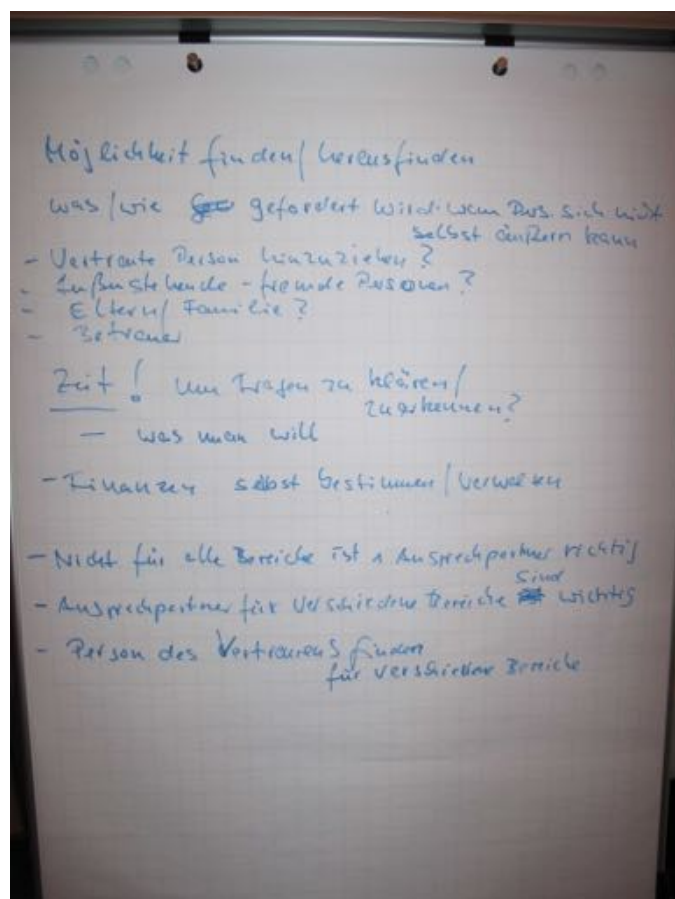 Möglichkeit finden/herausfinden
was/wie gefordert wird: wenn Pers. sich nicht
selbst äußern kann
- Vertraute Person hinzuziehen?
- Außenstehende - fremde Personen?
- Eltern/Familie?
- Betreuer
Zeit! um Fragen zu klären/
zu erkennen?
- was man will
- Finanzen selbst bestimmen/verwalten
- Nicht für alle Bereiche ist 1 Ansprechpartner richtig
sind
- Ansprechpartner für verschiedene Bereiche wichtig
- Person des Vertrauens finden
für verschiedene Bereiche